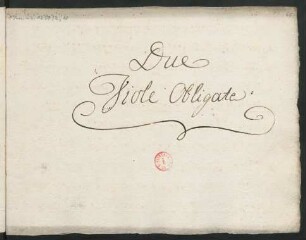 Due
Viole Obligate.